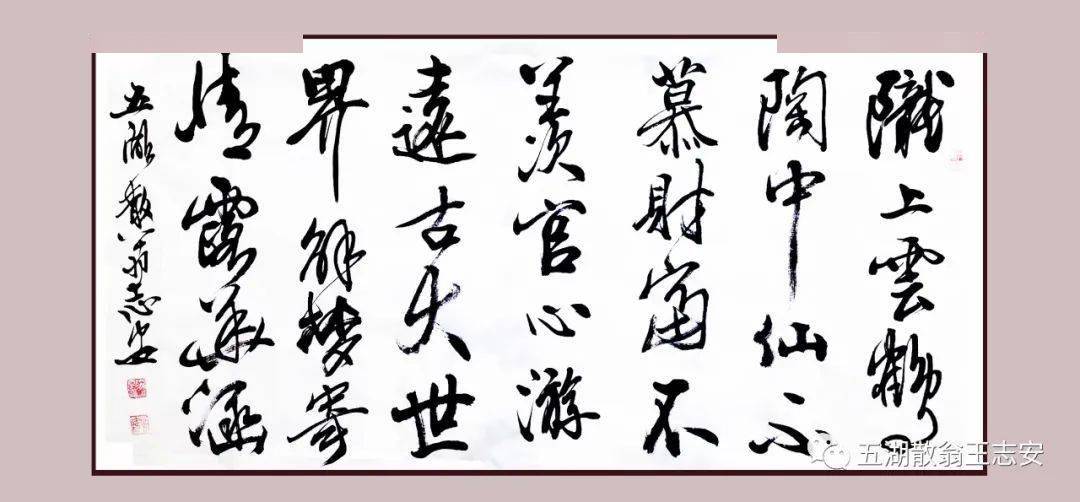 隴上雲鶴
陶中仙不
慕財富不
羨官心游
遠古大世
界解夢寄
情露華涵
五湖散翁志安
五湖散翁王志安